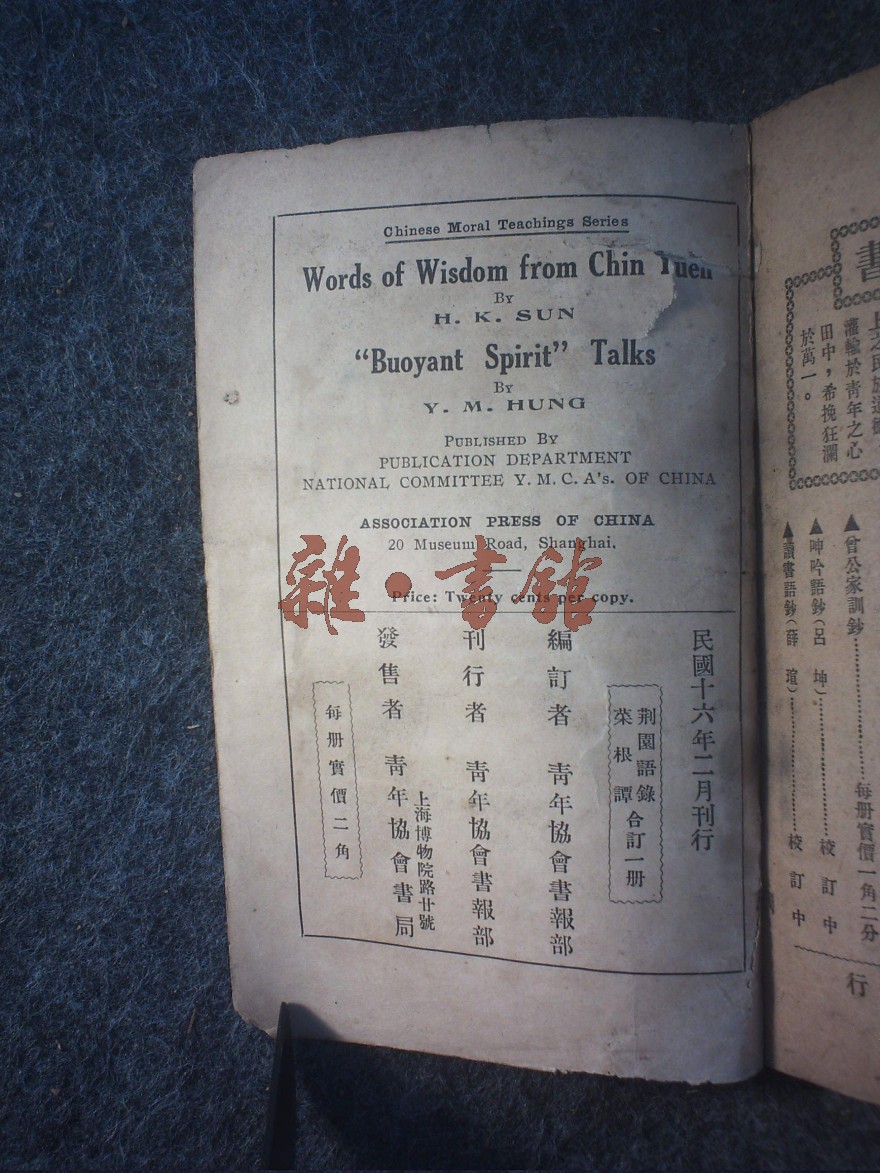 Chinese Moral Teachings Series
Words of Wisdom from Chin Yuen
By
H. K. SUN
"Buoyant Spirit" Talks
By
Y. M. HUNG
Published By
PUBLICATION DEPARTMENT
NATIONAL COMMITTEE Y. M. C. A's. OF CHINA
ASSOCIATION PRESS OF CHINA
20 Museum Road, Shanghai.
雜·書館
Price: Twenty cents per copy.
民國十六年二月刊行
荆園語錄
菜根譚
合訂一册
編訂者 青年協會書報部
刊行者 青年協會書報部
上海博物院路廿號
發售者 青年協會書局
每册實價二角
書
灌輸於青年之心
田中，希挽狂瀾
於萬一。
▲曾公家訓鈔………每册實價一角二分
▲呻吟語鈔(呂坤)………校訂中
▲讀書語鈔(薛瑄)………校訂中
行